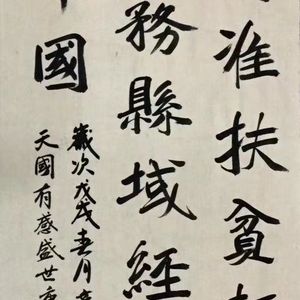 准扶貧
務縣域經
國
歲次戊戌春月
天國有感盛世